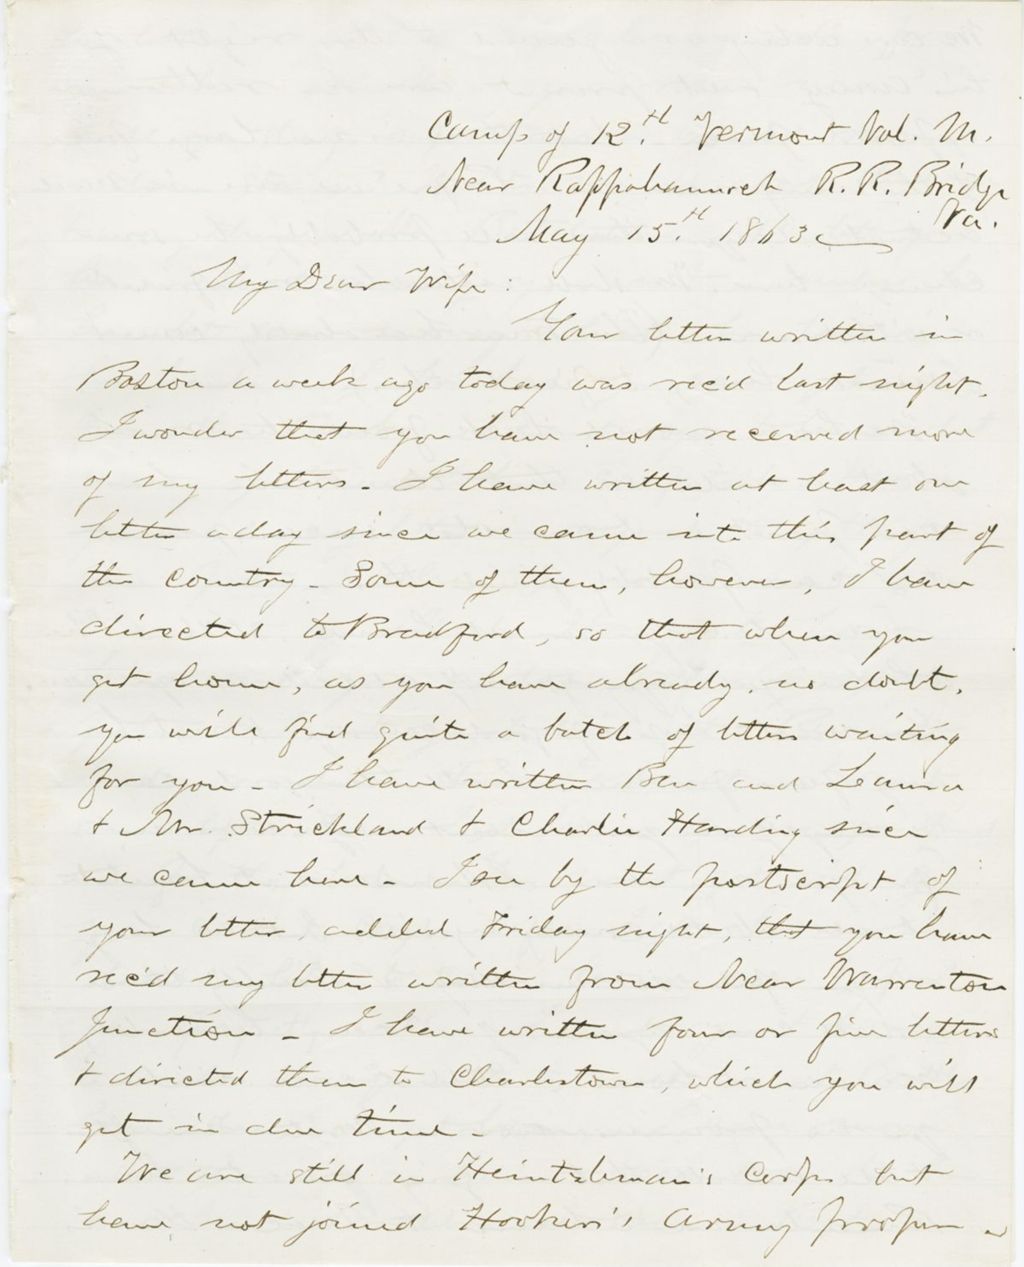 Camp of 12.th Vermont Vol. M.
Near Rappahannock R. R. Bridge
Va.
May 15.th 1863
My Dear Wife:
Your letter written in
Boston a week ago today was rec'd last night.
I wonder that you have not received more
of my letters - I have written at least one
letter a day since we came into this part of
the country - Some of them, however, I have
directed to Bradford, so that when you
get home, as you have already, no doubt,
you will find quite a batch of letters waiting
for you - I have written Ben and Laura
& Mr. Strickland & Charlie Harding since
we came here - I see by the postscript of
your letter, added Friday night, that you have
rec'd my letter written from Near Warrenton
Junction - I have written four or five letters
& directed them to Charlestown, which you will
get in due time -
We are still in Heintzleman's Corps but
have not joined Hooker's Army proper -